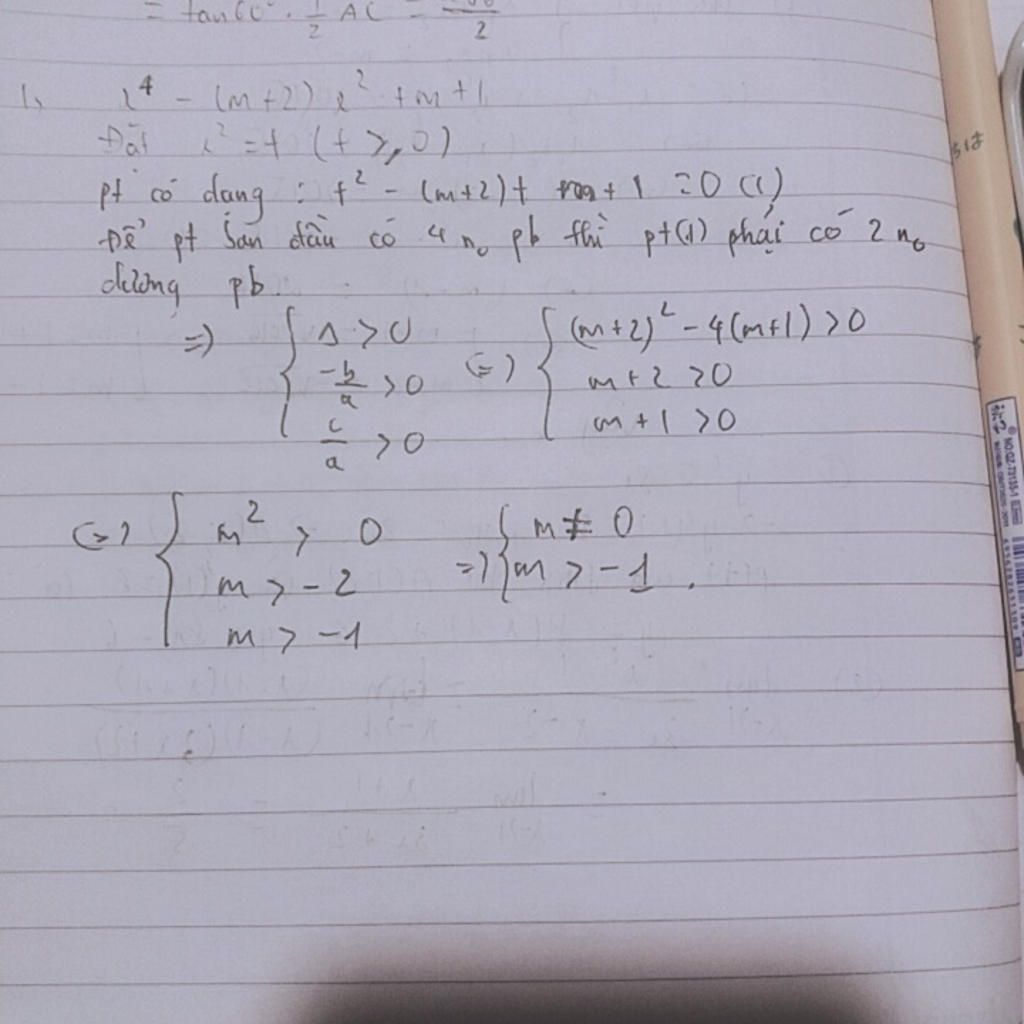 = tan60° . 1/2 AC =
1, x⁴ - (m+2) x² + m + 1
Đặt x² = t (t ≥ 0)
pt có dạng : t² - (m+2)t + m + 1 = 0 (1)
Để pt ban đầu có 4 n₀ pb thì pt(1) phải có 2 n₀
dương pb.
=> { Δ > 0 (=) { (m+2)² - 4(m+1) > 0
-b/a > 0 m + 2 > 0
c/a > 0 m + 1 > 0
(=) { m² > 0 => { m ≠ 0
m > -2 m > -1 .
m > -1